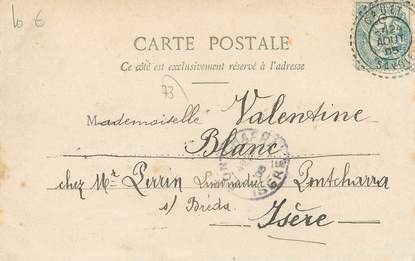 10 €
CARTE POSTALE
Ce côté est exclusivement réservé à l'adresse
73
Mademoiselle Valentine
Blanc
chez Mr Perrin Limonadier Pontcharra
s/ Bréda
Isère
AOUT
05
SAVOIE
ISÈRE